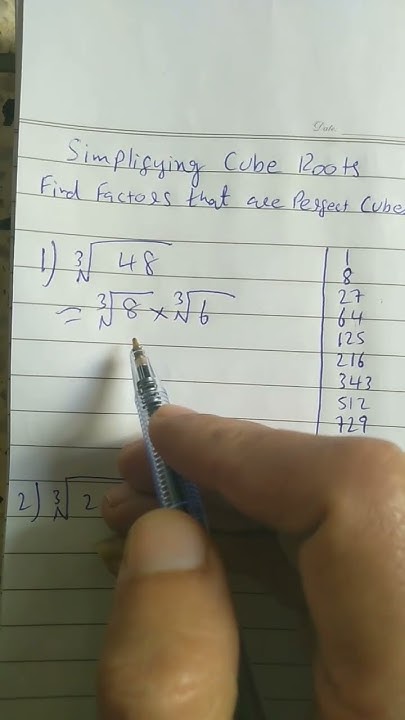 Date.
Simplifying Cube Roots
Find Factors that are Perfect Cube
1) ∛48
= ∛8 × ∛6
1
8
27
64
125
216
343
512
729
2) ∛2